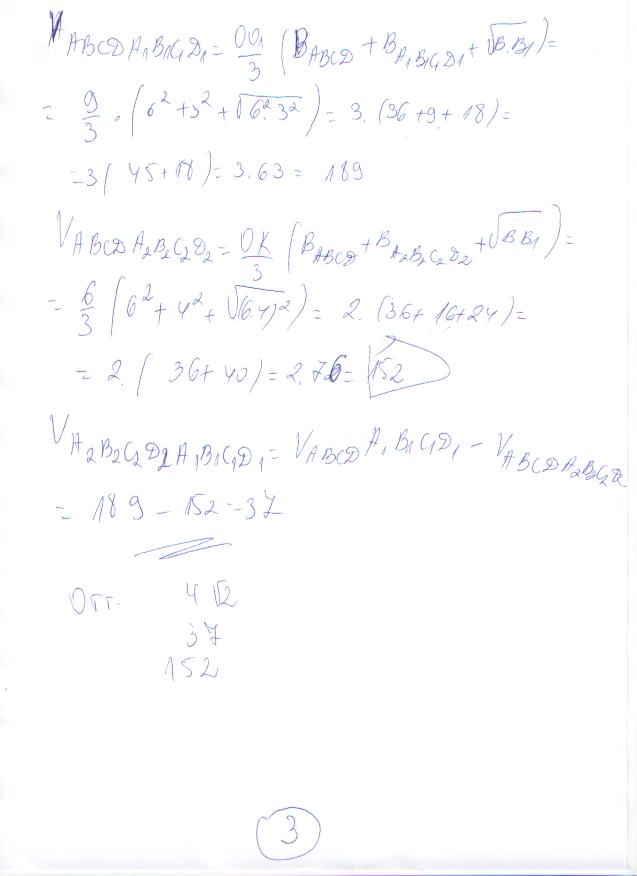 V ABCDA₁B₁C₁D₁ = OO₁/3 (B ABCD + B A₁B₁C₁D₁ + √B.B₁) =
= 9/3 . (6² + 3² + √6².3²) = 3. (36 + 9 + 18) =
= 3 ( 45 + 18 ) = 3.63 = 189
V ABCDA₂B₂C₂D₂ = OK/3 (B ABCD + B A₂B₂C₂D₂ + √BB₁) =
= 6/3 (6² + 4² + √(6.4)²) = 2. (36 + 16 + 24) =
= 2. ( 36 + 40 ) = 2.76 = 152
V A₂B₂C₂D₂A₁B₁C₁D₁ = V ABCDA₁B₁C₁D₁ - V ABCDA₂B₂C₂D₂
= 189 - 152 = 37
Отг. 4√2
37
152
3